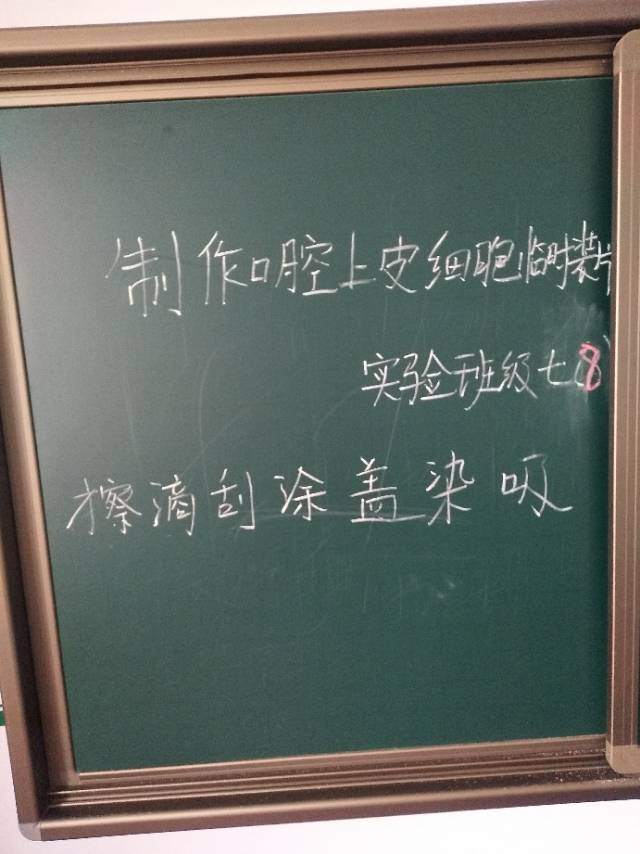 制作口腔上皮细胞临时装片
实验班级七(8)
擦滴刮涂盖染吸